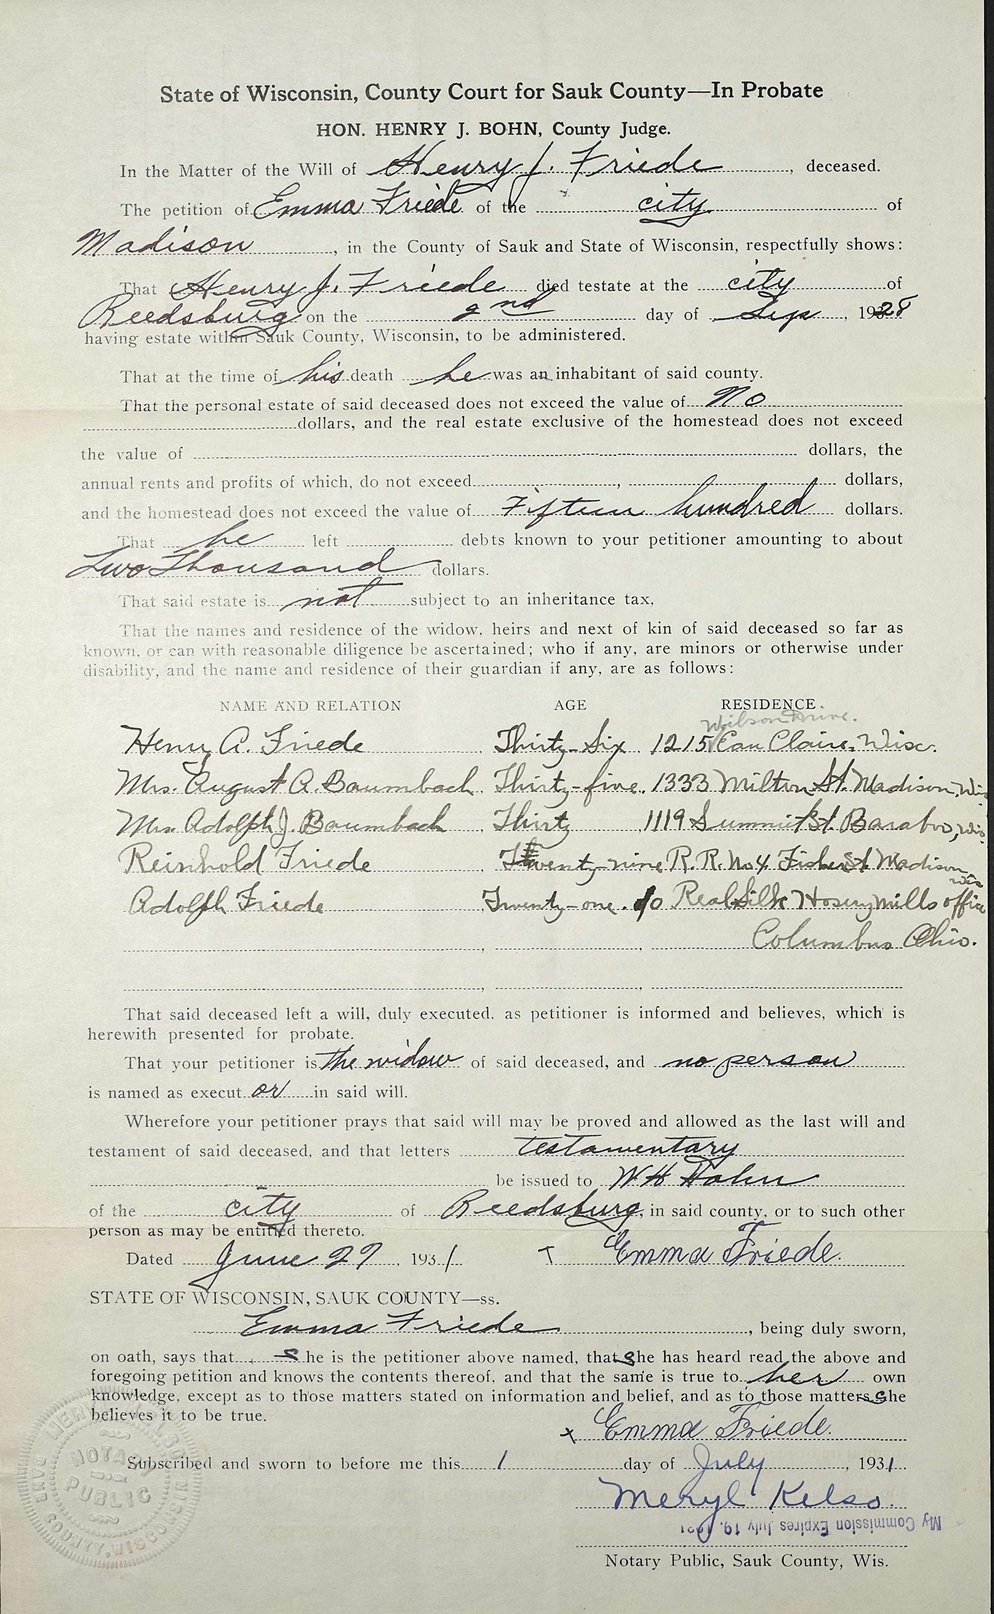 State of Wisconsin, County Court for Sauk County—In Probate
HON. HENRY J. BOHN, County Judge.
In the Matter of the Will of Henry J. Friede, deceased.
The petition of Emma Friede of the city of
Madison, in the County of Sauk and State of Wisconsin, respectfully shows:
That Henry J. Friede died testate at the city of
Reedsburg on the 2nd day of Sep, 1928
having estate within Sauk County, Wisconsin, to be administered.
That at the time of his death he was an inhabitant of said county.
That the personal estate of said deceased does not exceed the value of No
dollars, and the real estate exclusive of the homestead does not exceed
the value of dollars, the
annual rents and profits of which, do not exceed , dollars,
and the homestead does not exceed the value of Fifteen hundred dollars.
That he left debts known to your petitioner amounting to about
Two Thousand dollars.
That said estate is not subject to an inheritance tax,
That the names and residence of the widow, heirs and next of kin of said deceased so far as
known, or can with reasonable diligence be ascertained; who if any, are minors or otherwise under
disability, and the name and residence of their guardian if any, are as follows:
NAME AND RELATION AGE RESIDENCE
Wilson Drive.
Henry A. Friede Thirty-Six 1215 Eau Claire, Wisc.
Mrs. August A. Baumbach Thirty-five 1333 Milton St. Madison, Wis
Mrs Adolph J. Baumbach Thirty 1119 Summit St. Baraboo, Wis
Reinhold Friede Twenty-nine R.R. No 4 Fisher St Madison Wis
Adolph Friede Twenty-one. c/o Real Silk Hosiery Mills office
Columbus Ohio.
That said deceased left a will, duly executed, as petitioner is informed and believes, which is
herewith presented for probate.
That your petitioner is the widow of said deceased, and no person
is named as execut or in said will.
Wherefore your petitioner prays that said will may be proved and allowed as the last will and
testament of said deceased, and that letters testamentary
be issued to W H Hahn
of the city of Reedsburg, in said county, or to such other
person as may be entitled thereto.
Dated June 29, 1931 Emma Friede.
STATE OF WISCONSIN, SAUK COUNTY—ss.
Emma Friede, being duly sworn,
on oath, says that s he is the petitioner above named, that she has heard read the above and
foregoing petition and knows the contents thereof, and that the same is true to her own
knowledge, except as to those matters stated on information and belief, and as to those matters she
believes it to be true.
x Emma Friede.
Subscribed and sworn to before me this 1 day of July, 1931
Meryl Kelso.
My Commission Expires July 19, 1931
Notary Public, Sauk County, Wis.
NOTARY
PUBLIC